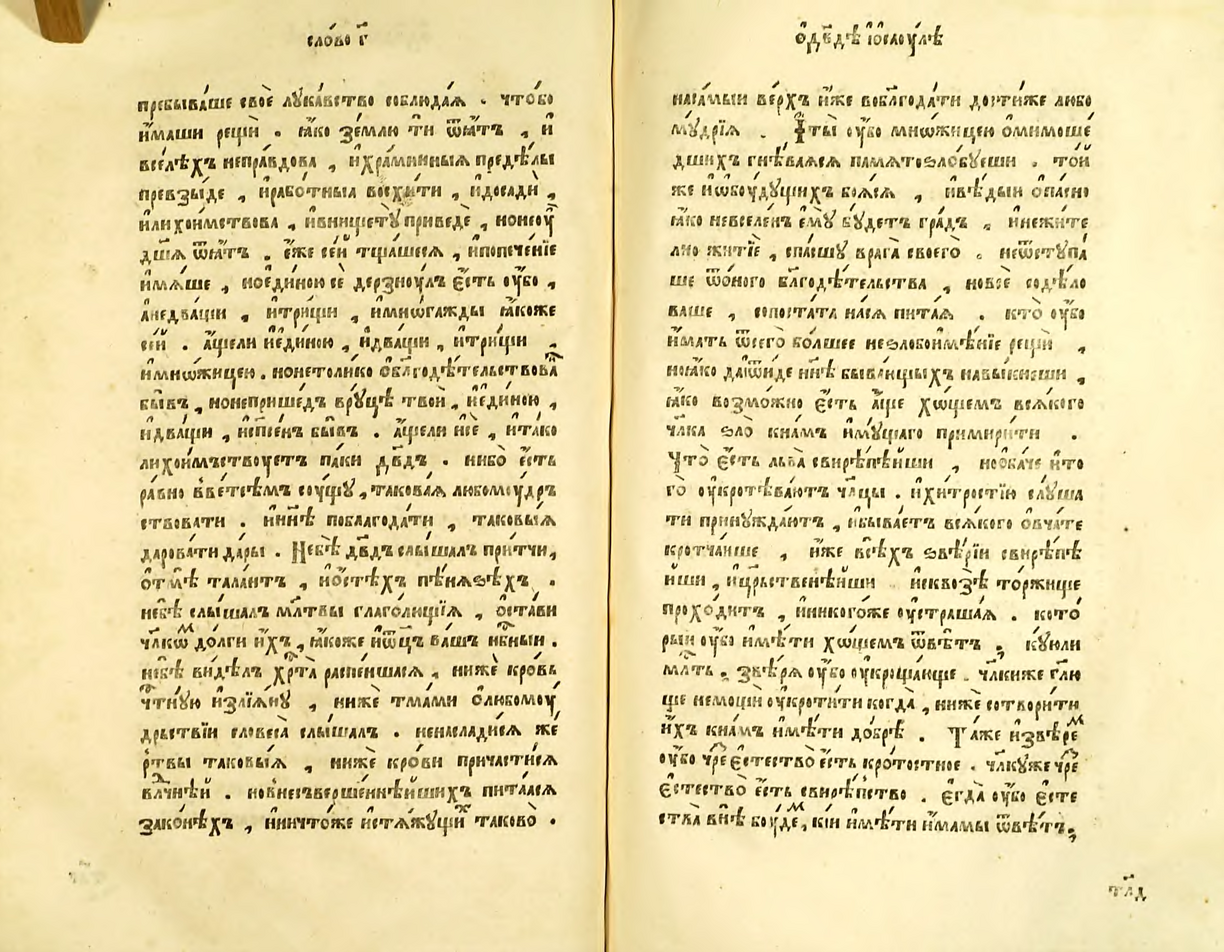 сло́во г҃
пребыва́ше своѐ лꙋка́вство соблюда́ѧ . что́бо
и҆́маши рещѝ . ꙗ҆́ко зе́млю ти ѿѧ́тъ , и҆
всѣ́хъ непра́вдова , и҆хра́минныѧ предѣ́лы
превзы́де , и҆рабо́тныѧ восхи́ти , и҆досадѝ ,
и҆лихои́мствова , и҆внищетꙋ̀ приведѐ , нонеоу҆
дш҃ѧ̀ ѿѧ́тъ . є҆́же се́й тща́шесѧ , и҆попече́нїе
и҆мѧ́ше , ноеди́ною сѐ дерзноу́лъ є҆́сть оу҆́бо ,
а҆недва́щи , и҆три́щи , и҆мно́гажды ꙗ҆́коже
се́й . а҆́щели неди́ною , и҆два́щи , и҆три́щи
и҆мно́жицею . нонето́лико ѡ҆бл҃годѣ́тельствова
бы́въ , нонеприше́дъ врꙋ́цѣ твоѝ , неди́ною ,
и҆два́щи , не҆псе́нъ бы́въ . а҆́щели нсѐ , и҆та́ко
лихои́мъствꙋетъ па́ки дв҃дъ . нибо̀ є҆́сть
ра́вно вве́тсѣмъ соу́щꙋ , такова́ѧ любомоу́др
ствовати . и҆ны́нѣ поблагода́ти , таковы́ѧ
дарова́ти да́ры . Небѣ̀ дв҃дъ слы́шалъ при́тчи,
ѻ҆тмѣ̀ тала́нтъ , и҆ѻ҆стѣ́хъ пѣ́нѧзѣхъ .
небѣ̀ слы́шалъ мл҃твы глаго́лющїѧ , ѻ҆ста́ви
чл҃кѡм до́лги и҆́хъ , ꙗ҆́коже и҆ѻ҆ц҃ъ ва́шъ нб҃ныи .
небѣ̀ ви́дѣлъ хр҃та̀ распе́ншасѧ , нижѐ кро́вь
чтнꙋ́ю и҆злїѧ́нꙋ , нижѐ тма́ми ѡ҆любомоу҆
дрьствїи словеса̀ слы́шалъ . ненаслади́сѧ же́
ртвы таковы́ѧ , нижѐ кро́ви причасти́сѧ
вл҃чнѣй . новнесъверше́ннѣйшихъ пита́лсѧ
зако́нѣхъ , и҆ничто́же и҆стѧжꙋ́щих таково̀ .
ѻ҆дв҃дѣ и҆ѻ҆саоу́лѣ
наса́мыи ве́рхъ и҆́же вобл҃года́ти дости́же любо
мꙋ́дрїѧ . И҆ты̀ оу҆́бо мно́жицею ѡ҆мимоше́
дшихъ гнѣ́ваѧсѧ памѧтоѕло́бꙋеши . то́й
же и҆ѡ҆боу́дꙋщихъ боѧ́сѧ , и҆вѣ́дыи ѻ҆па́сно
ꙗ҆́ко невселе́нъ є҆мꙋ̀ бꙋ́детъ гра́дъ , и҆нежите
лно житїѐ , спа́сшꙋ врага̀ своего̀ . неѿстꙋпа́
ше ѿѻ҆́ного бл҃годѣ́тельства , но́вое содѣ́ло
ваше , сопоста́та на́сѧ пита́ѧ . кто̀ оу҆́бо
и҆́мать ѿсего̀ бо́лшее неѕлобоимѣ́нїе рещѝ ,
ноꙗ҆́ко даѿи́де ны́нѣ быва́ющихъ навы́кнеши ,
ꙗ҆́ко возмо́жно є҆́сть а҆́ще хо́щемъ всѧ́кого
чл҃ка ѕло̀ кна́мъ и҆мꙋ́щаго примири́ти .
Что̀ є҆́сть льва̀ свирѣпѣ́йши , но́баче и҆то
го̀ оу҆кротѣва́ютъ чл҃цы . и҆хи́тростїю слꙋ́ша
ти принꙋжда́ютъ , и҆быва́етъ всѧ́кого ѻ҆вча́те
кротча́ише , и҆́же всѣ́хъ ѕвѣ́рїи свирѣпѣ́
йши , и҆црьственнѣ́йши и҆сквозѣ̀ то́ржище
прохо́дитъ , и҆никого́же оу҆страша́ѧ . кото́
рыи оу҆́бо и҆мѣ́ти хо́щемъ ѿвѣ́тъ , кꙋ́юли
мл҃ть . ѕвѣ́рѧ оу҆́бо оу҆кроща́юще . чл҃киже гл҃ю
ще не́мощи оу҆кроти́ти когда̀ , нижѐ сотвори́ти
и҆́хъ кна́мъ и҆мѣ́ти до́брѣ . Та́же и҆звѣрем
оу҆́бо чре є҆стество̀ є҆́сть кро́тостное . чл҃кꙋже чре
є҆стество̀ є҆́сть свирѣ́пство . є҆гда̀ оу҆́бо є҆сте
ства̀ внѣ̀ боу́дем , кі́и и҆мѣ́ти и҆́мамы ѿвѣ́тъ,